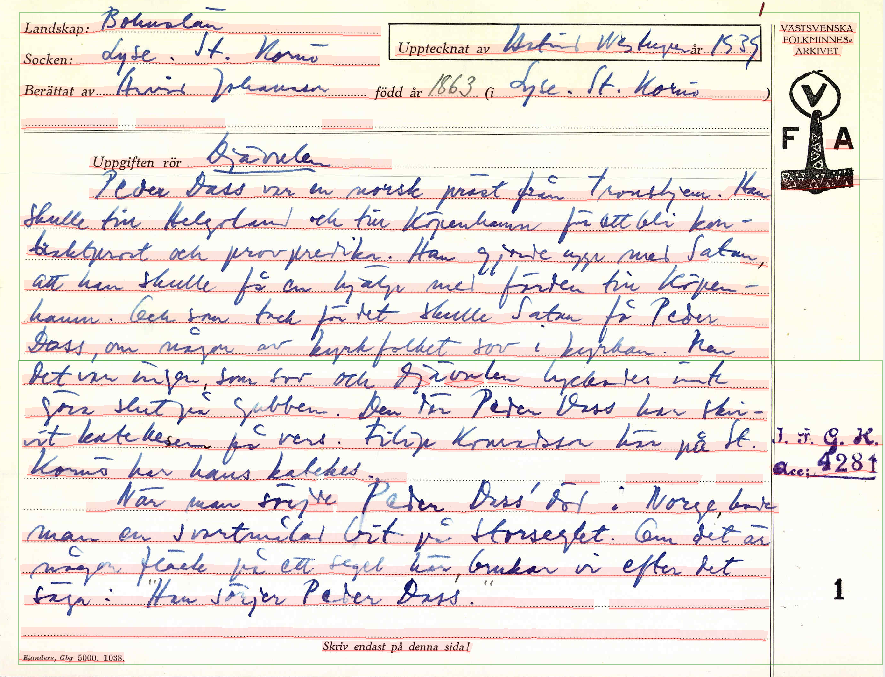 Landskap: Bohuslän
Upptecknat av Astrid år 1939
Socken: Lyse. St. Kornö
Berättat av Arvid Johansson född år 1863 (i Lyse. St. Kornö )
VÄSTSVENSKA
FOLKMINNES-
ARKIVET
V
F A
Uppgiften rör Djävulen
Peder Dass var en norsk präst från Tronhjem. Han
skulle till Helgoland och till Köpenhamn för att bli kon-
traktprost och provpredika. Han gjorde upp med Satan,
att han skulle få en hjälp med färden till Köpen-
hamn. Och som tack för det skulle Satan få Peder
Dass, om någon av kyrkfolket sov i kyrkan. Men
det var ingen, som sov och djävulen lyckades inte
göra slut på gubben. Den där Peder Dass har skri-
vit katekesern på vers. Filip Konradsson här på St.
Kornö har hans katekes.
När man sörjde Peder Dass' död i Norge, hade
man en svartmålad bit på storseglet. Om det är
någon fläck på ett segel här, brukar vi efter det
säga: "Han sörjer Peder Dass."
I. F. G. H.
Acc: 4281
1
Skriv endast på denna sida!
Elanders, Gbg 5000. 1038.